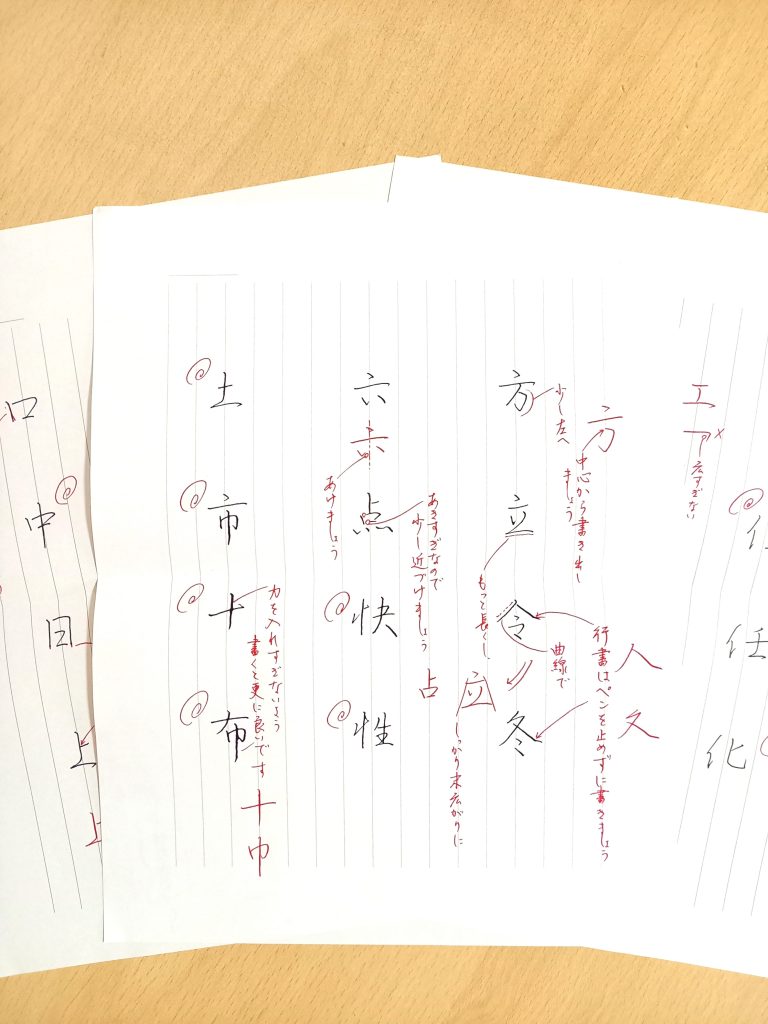 エ
ア
広すぎない
仁
任
化
方
立
令
冬
少し左へ
方
中心から書き出し
ましょう
もっと長くし、
曲線で
立
しっかり末広がりに
行書はペンを止めずに書きましょう
人
夂
六
点
快
性
六
あけましょう
あきすぎなので
少し近づけましょう
占
土
市
十
布
力を入れすぎないよう
書くと更に良いです
十
巾
口
中
目
上
上